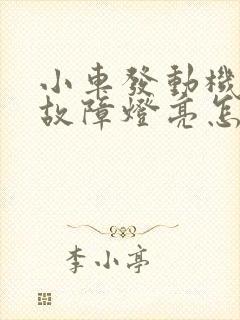 小車發動機
故障燈亮怎
李小亭